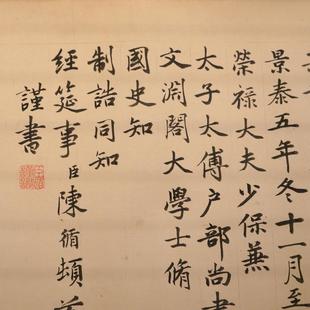 景泰五年冬十一月至
榮祿大夫少保兼
太子太傅户部尚書
文淵閣大學士脩
國史知
制誥同知
經筵事臣陳循頓首
謹書